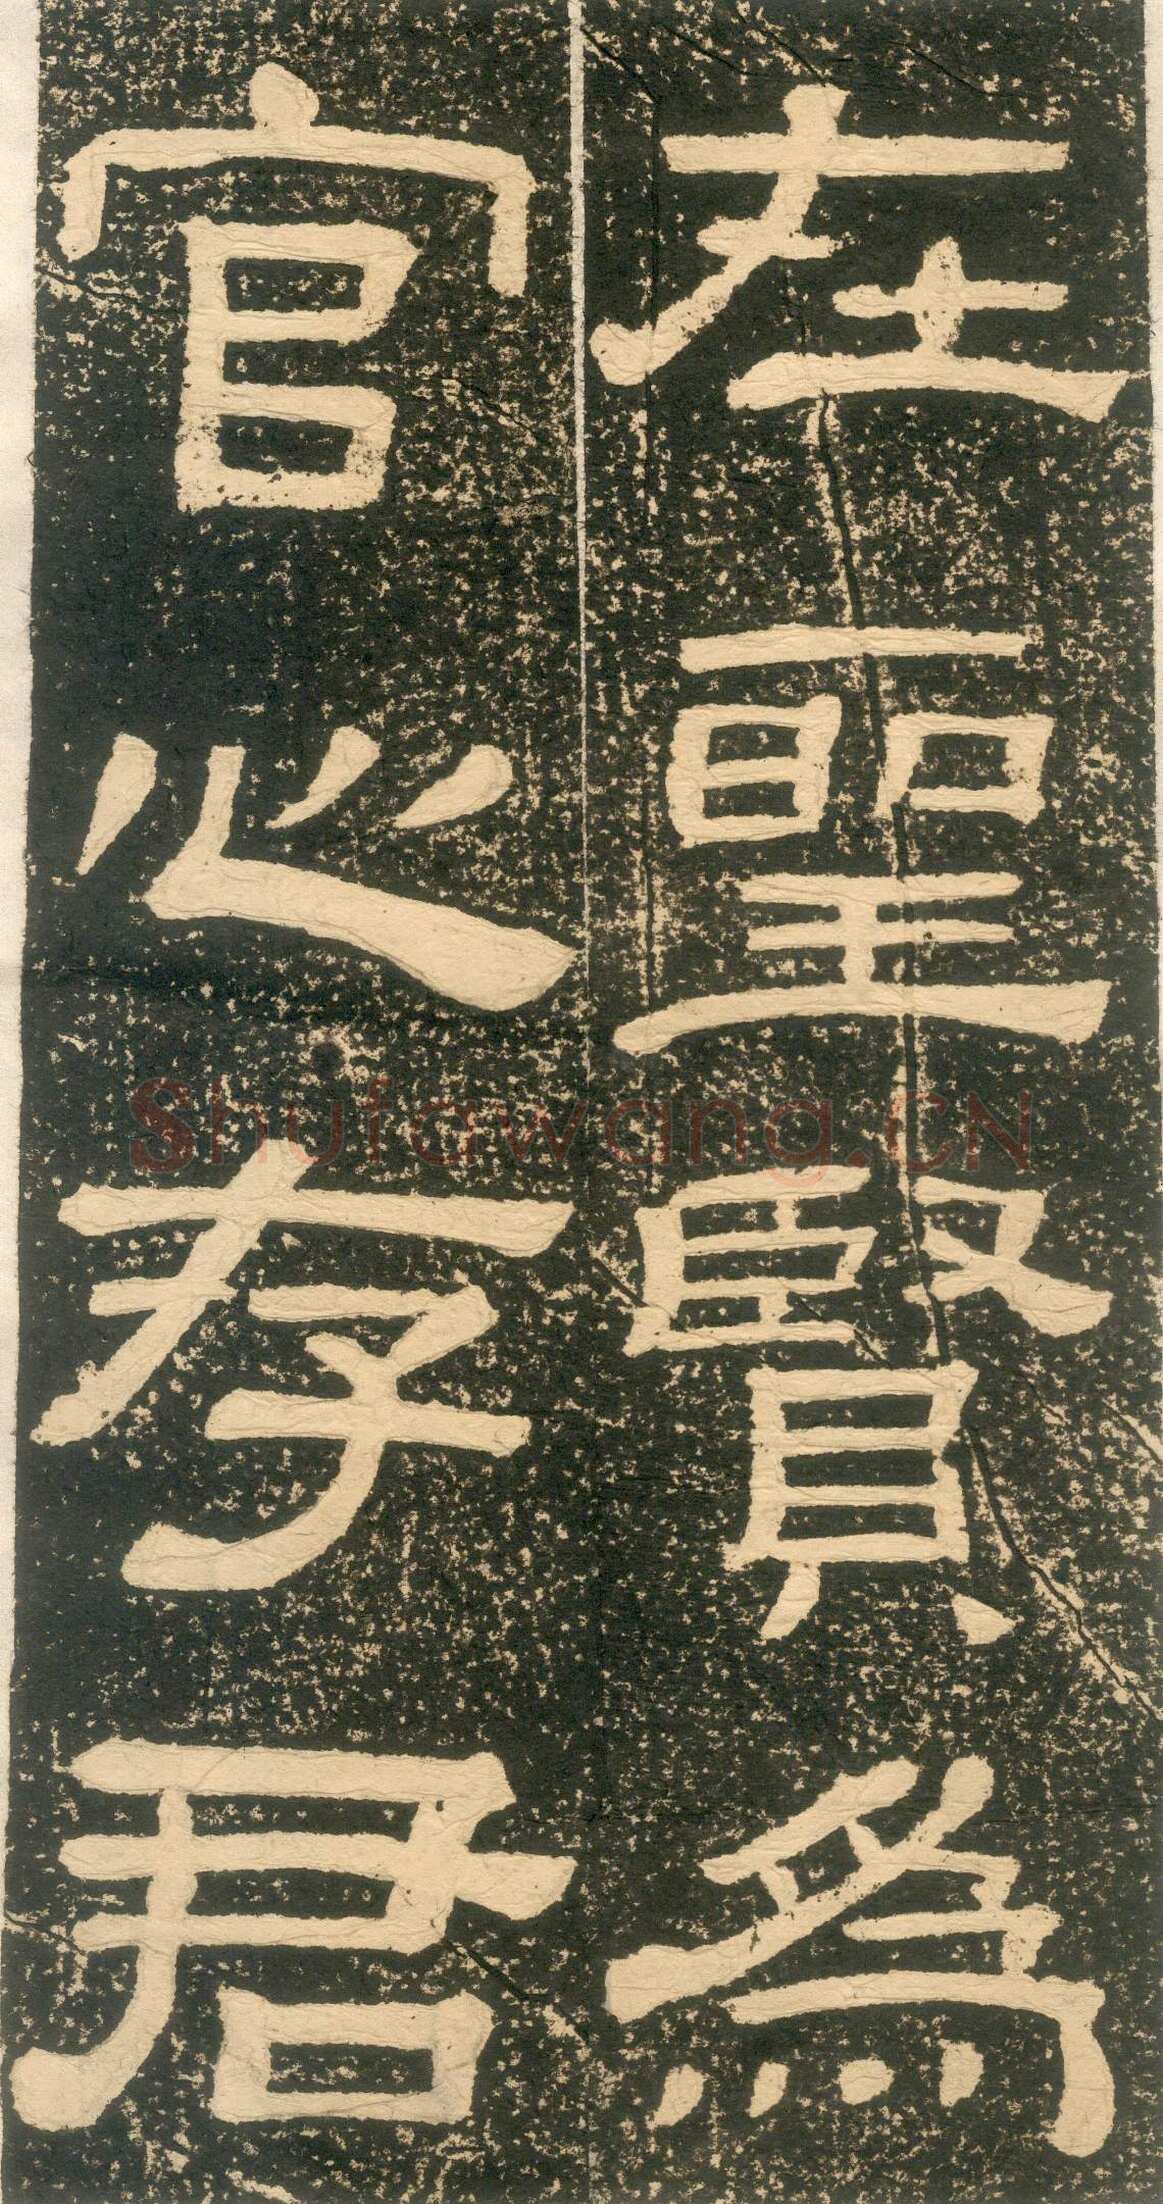 在聖賢爲
官心存君
Shufawang.CN